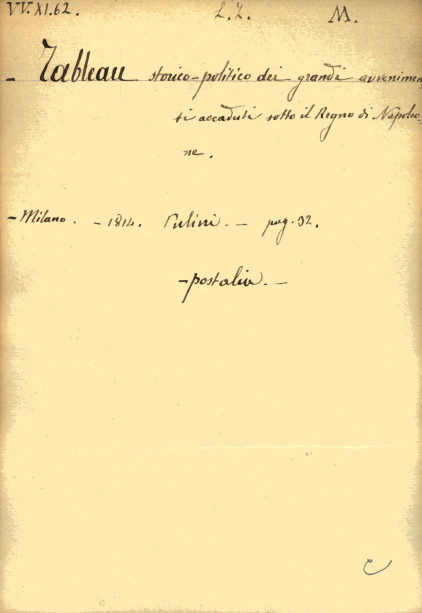 VV.XI.62. L.Z. M.
- Tableau storico-politico dei grandi avvenimen-
ti accaduti sotto il Regno di Napoleo-
ne.
- Milano. - 1814. Pulini. - pag. 32.
- postalio. -
C